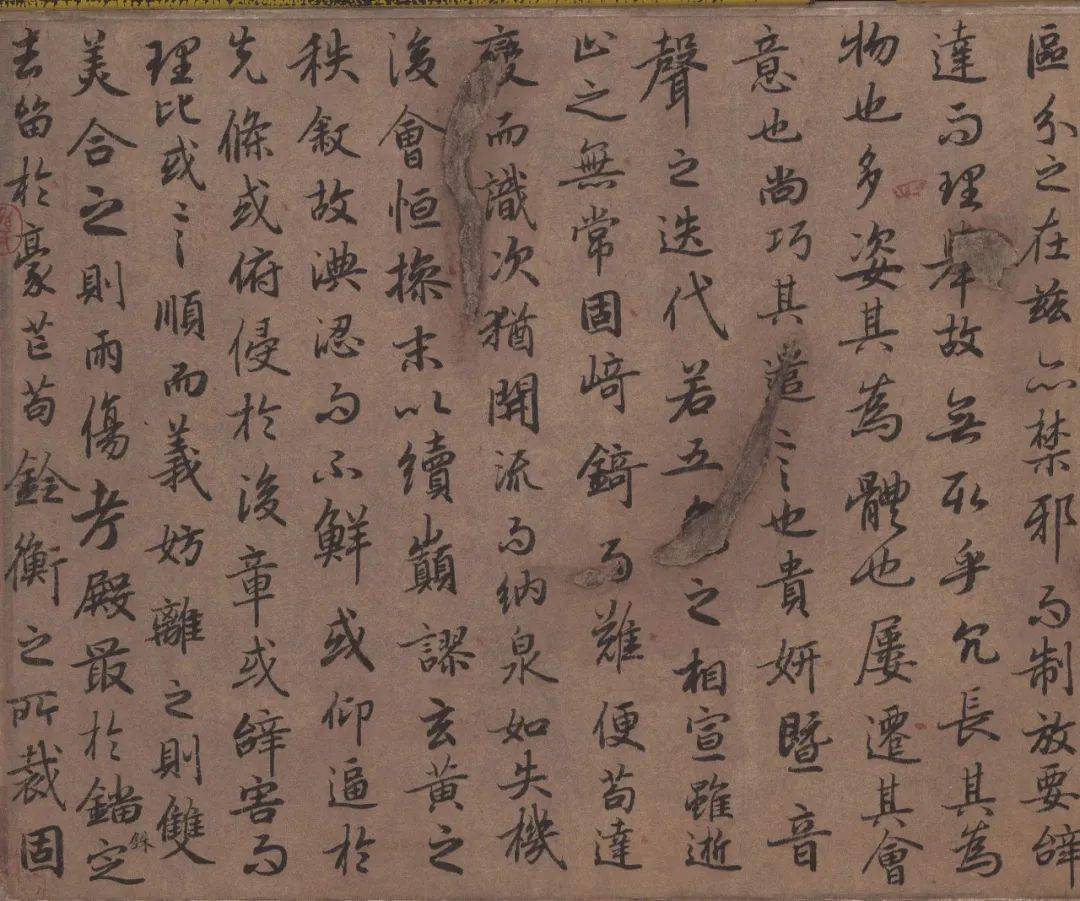 區分之在茲亦禁邪而制放要辭
達而理舉故無取乎冗長其為
物也多姿其為體也屢遷其會
意也尚巧其遣言也貴妍暨音
聲之迭代若五之相宣雖逝
止之無常固崎錡而難便苟達
變而識次猶開流而納泉如失機
後會恒操末以續顛謬玄黃之
秩敘故淟涊而不鮮或仰逼於
先條或俯侵於後章或辭害而
理比或言順而義妨離之則雙
美合之則兩傷考殿最於錙銖定
去留於豪芒苟銓衡之所裁固